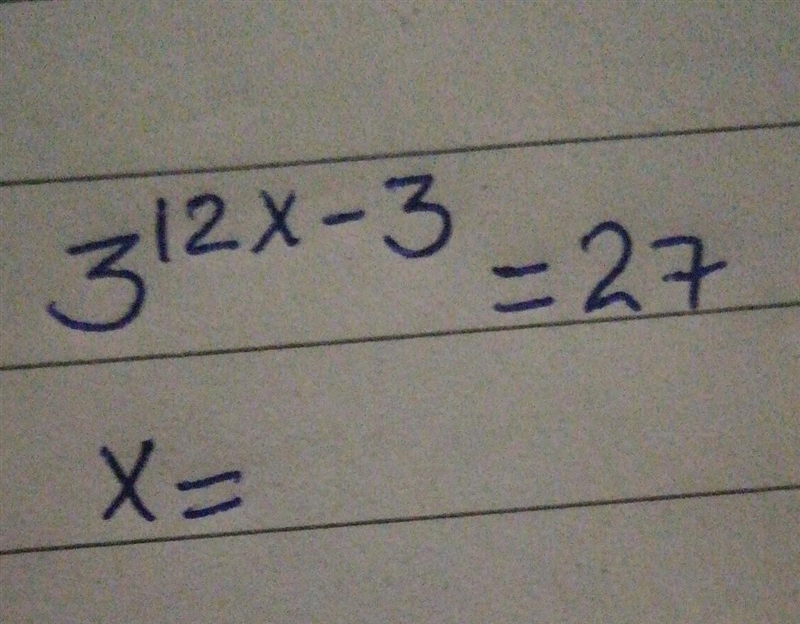 3^12x-3 = 27
x =